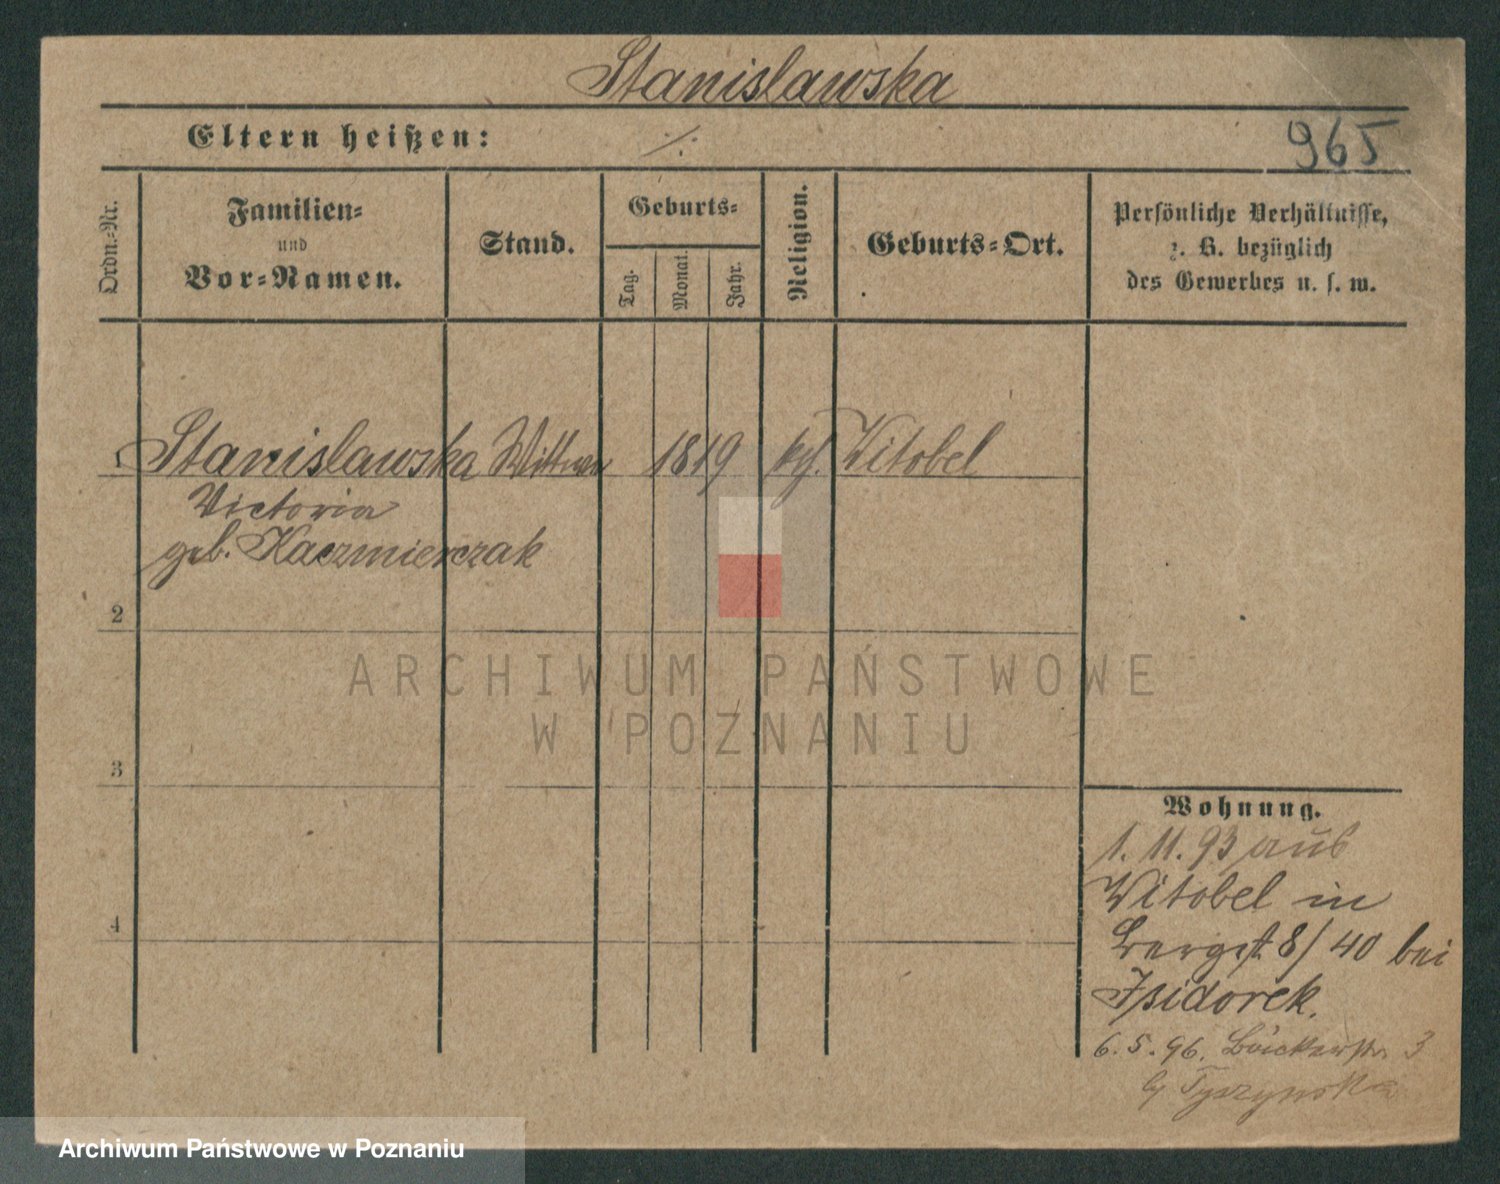 Stanislawska
Eltern heißen: ·/.
965
Ordn.-Nr.
Familien-
und
Vor-Namen.
Stand.
Geburts-
Tag.
Monat.
Jahr.
Religion.
Geburts-Ort.
Persönliche Verhältnisse,
z. B. bezüglich
des Gewerbes u. s. w.
1 Stanislawska Wittwe 1819 kth. Witobel
Victoria
geb. Kaczmierczak
2
3
4
ARCHIWUM PAŃSTWOWE
W POZNANIU
Wohnung.
1. 11. 93 aus
Witobel in
Bergst. 8/40 bei
Isidorek.
6. 5. 96. Bäckerstr. 3
Tyszynska
Archiwum Państwowe w Poznaniu